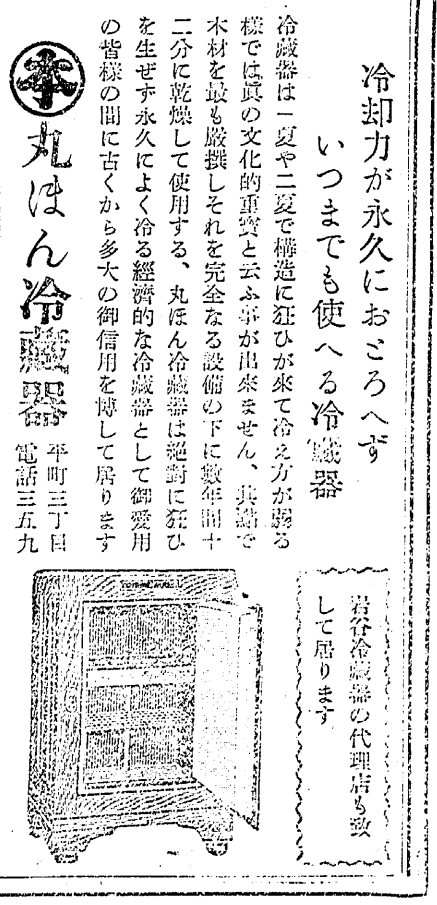 冷却力が永久におとろへず
いつまでも使へる冷藏器
冷藏器は一夏や二夏で構造に狂ひが來て冷え方が弱る
樣では眞の文化的重寳と云ふ事が出來ません、其點で
木材を最も嚴撰しそれを完全なる設備の下に數年間十
二分に乾燥して使用する、丸ほん冷藏器は絕對に狂ひ
を生ぜず永久によく冷る經濟的な冷藏器として御愛用
の皆樣の間に古くから多大の御信用を博して居ります
本
丸ほん冷藏器
平町三丁目
電話三五九
岩谷冷藏器の代理店も致
して居ります